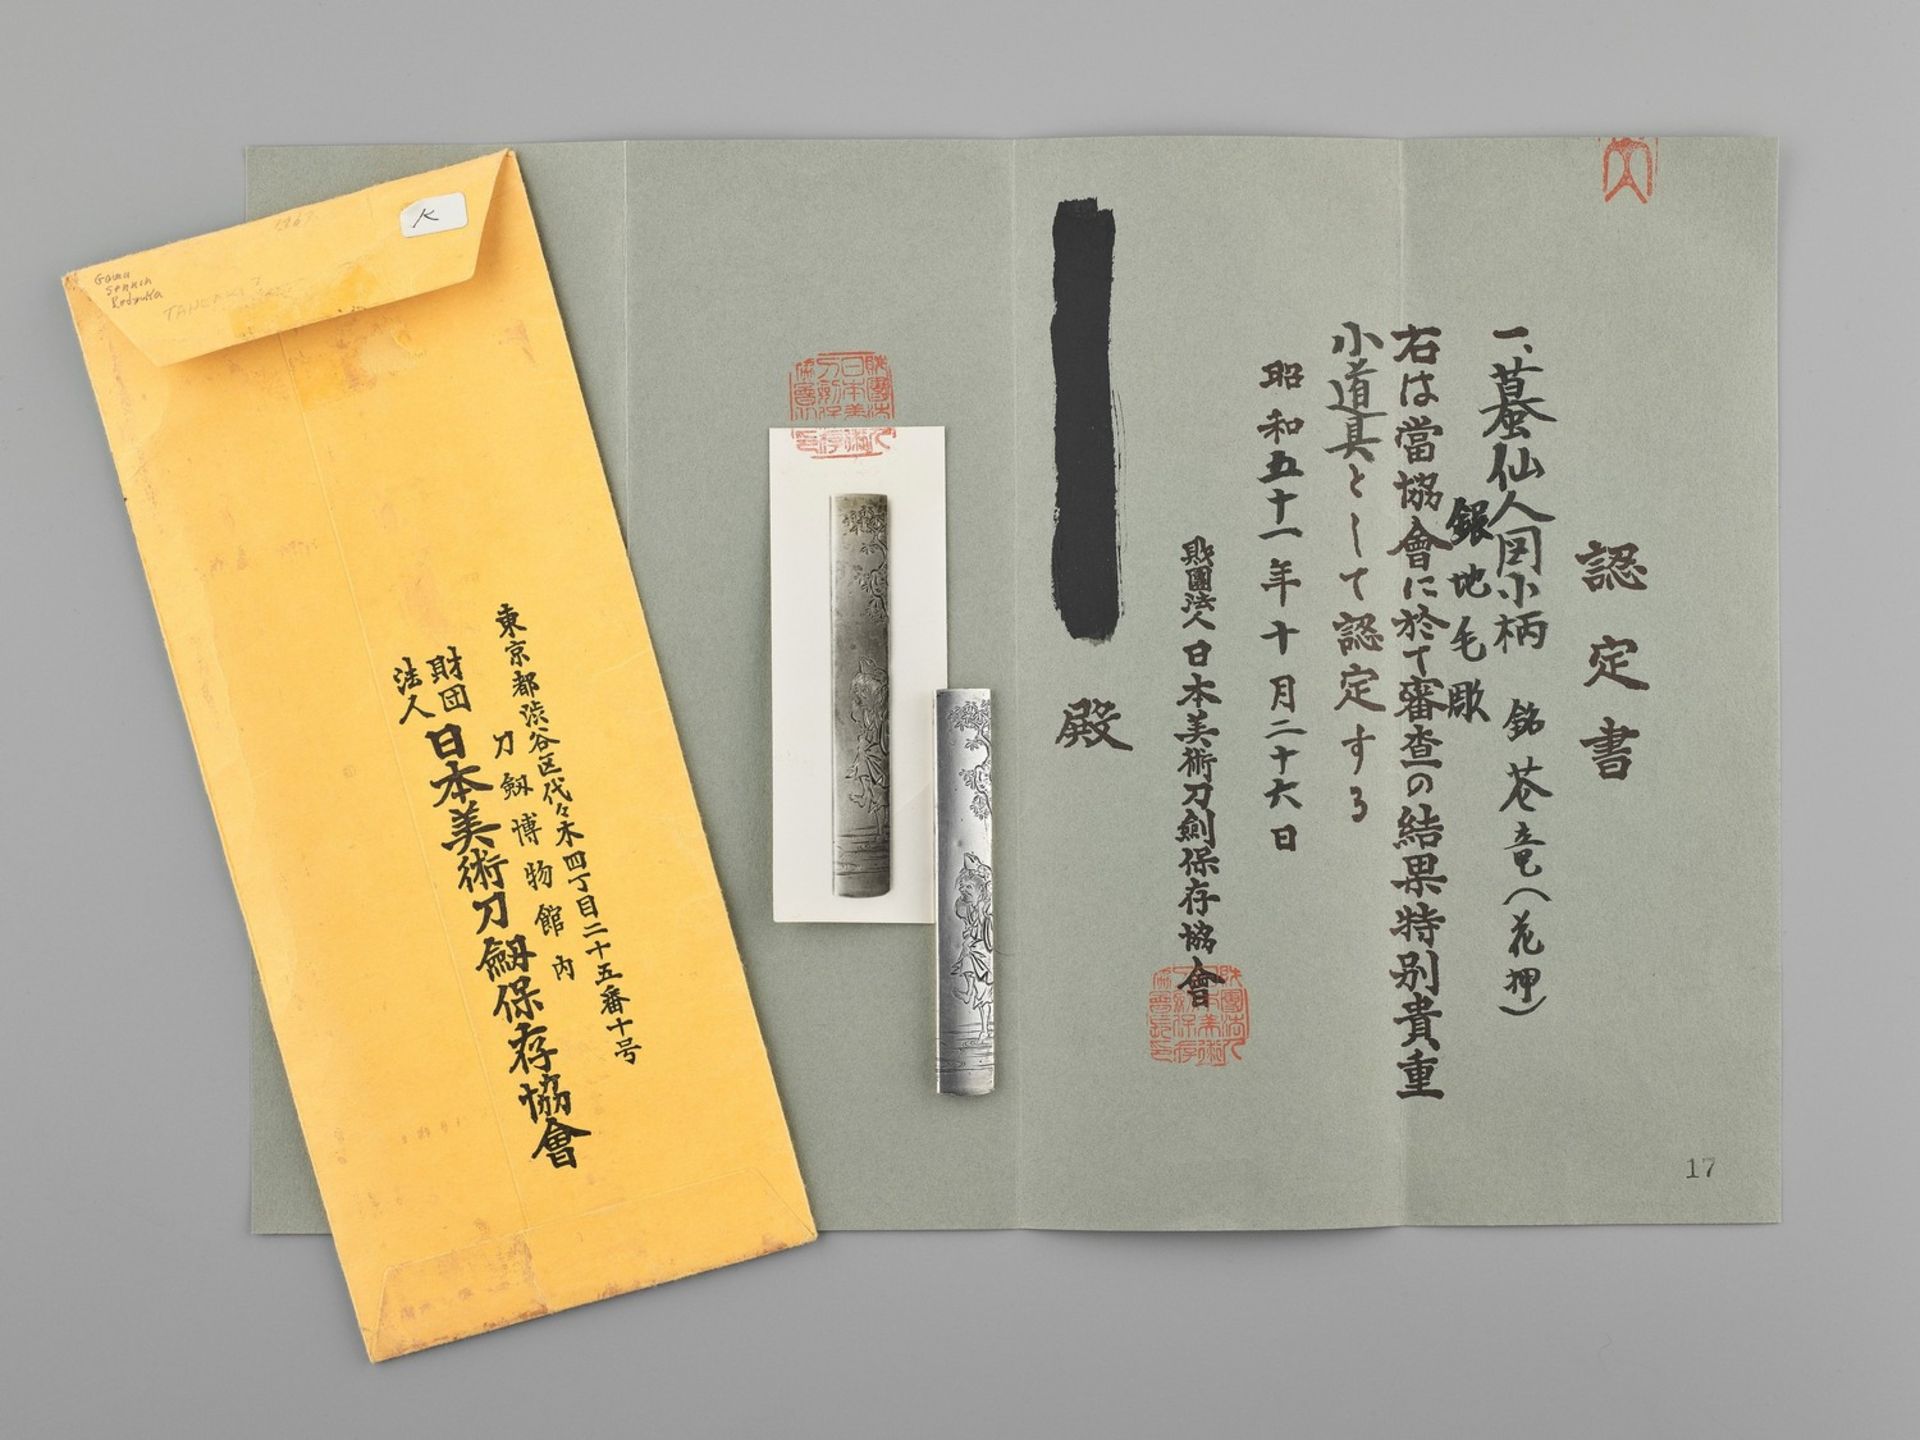 認定書
一、蟇仙人図小柄 銘 苍竜(花押)
銀地毛彫
右は當協會に於て審査の結果特別貴重
小道具として認定する
昭和五十一年十月二十六日
財團法人日本美術刀劍保存協會
殿
17
東京都渋谷区代々木四丁目二十五番十号
刀劔博物館内
財団法人日本美術刀劔保存協會
K
1967
Gama
Sennin
Kodzuka
財團法人日本美術刀劍保存協會印